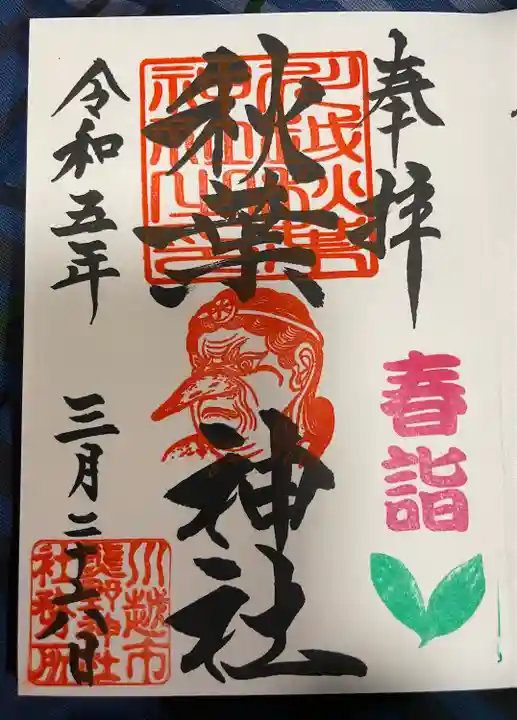 奉拝
春詣
秋葉神社
川越秋葉
神社之印
令和五年
三月二十六日
川越市
熊野神社
社務所